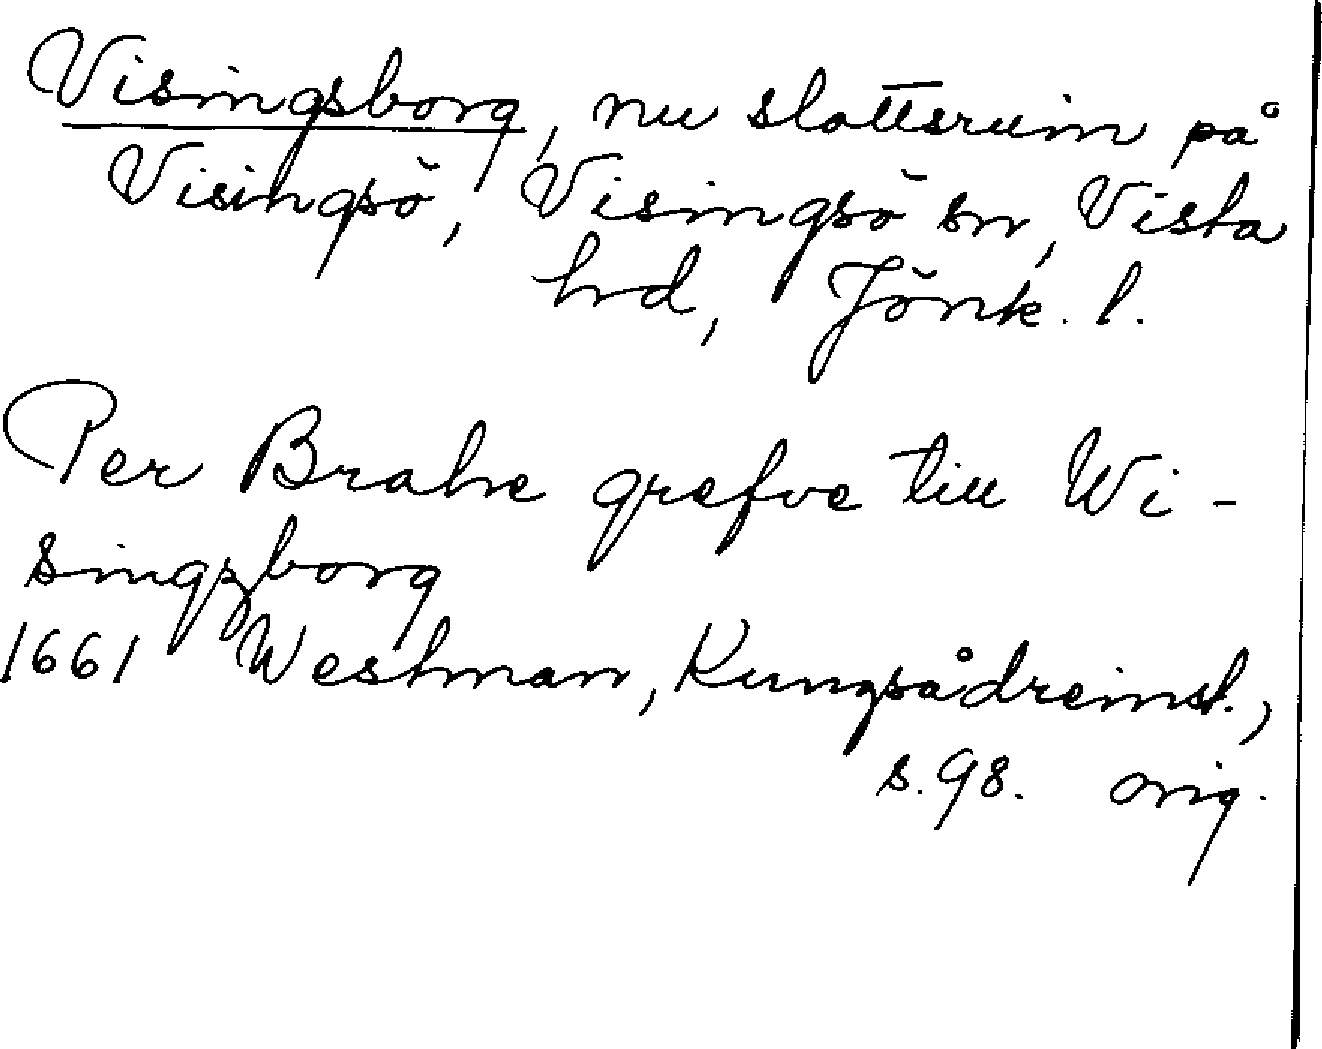 Visingsborg, nu slottsruin på
Visingsö, Visingsö sn, Vista
hrd, Jönk. l.
Per Brahe grefve till Wi-
singzborg
1661 Westman, Kungsådreinst.,
s. 98. orig.